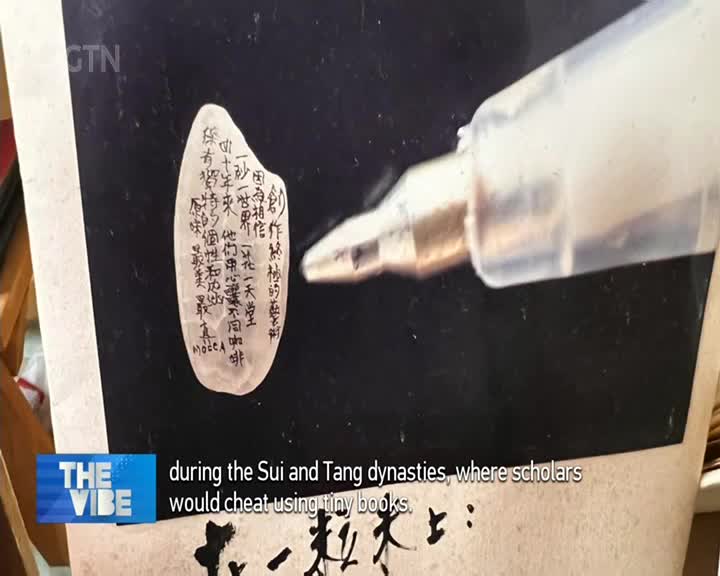 CGTN
創作終極的藝術
因為相信
一砂一世界 一花一天堂
四十年來 他們用心讓不同咖啡
保有獨特的個性和
原味 最美 最真
THE
VIBE
during the Sui and Tang dynasties, where scholars
would cheat using tiny books.
一粒米上：